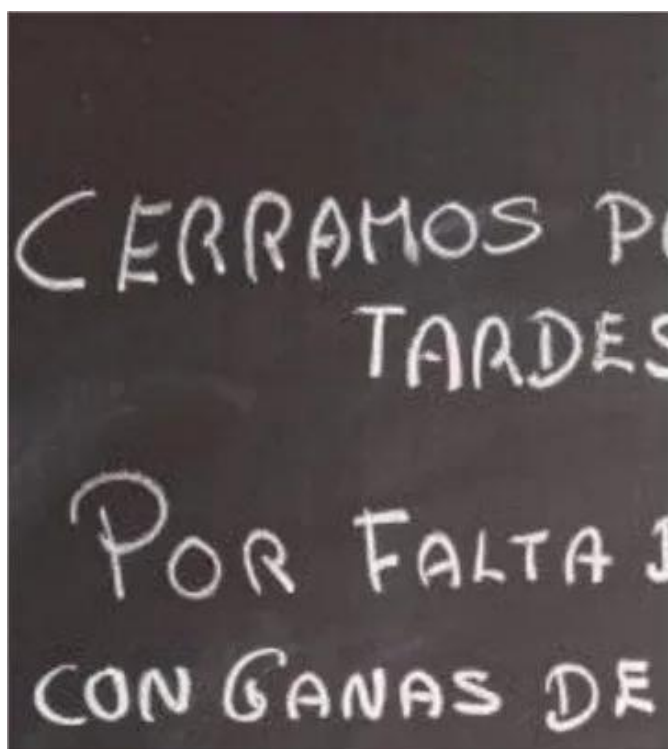 CERRAMOS
TARDES
POR FALTA
CON GANAS DE